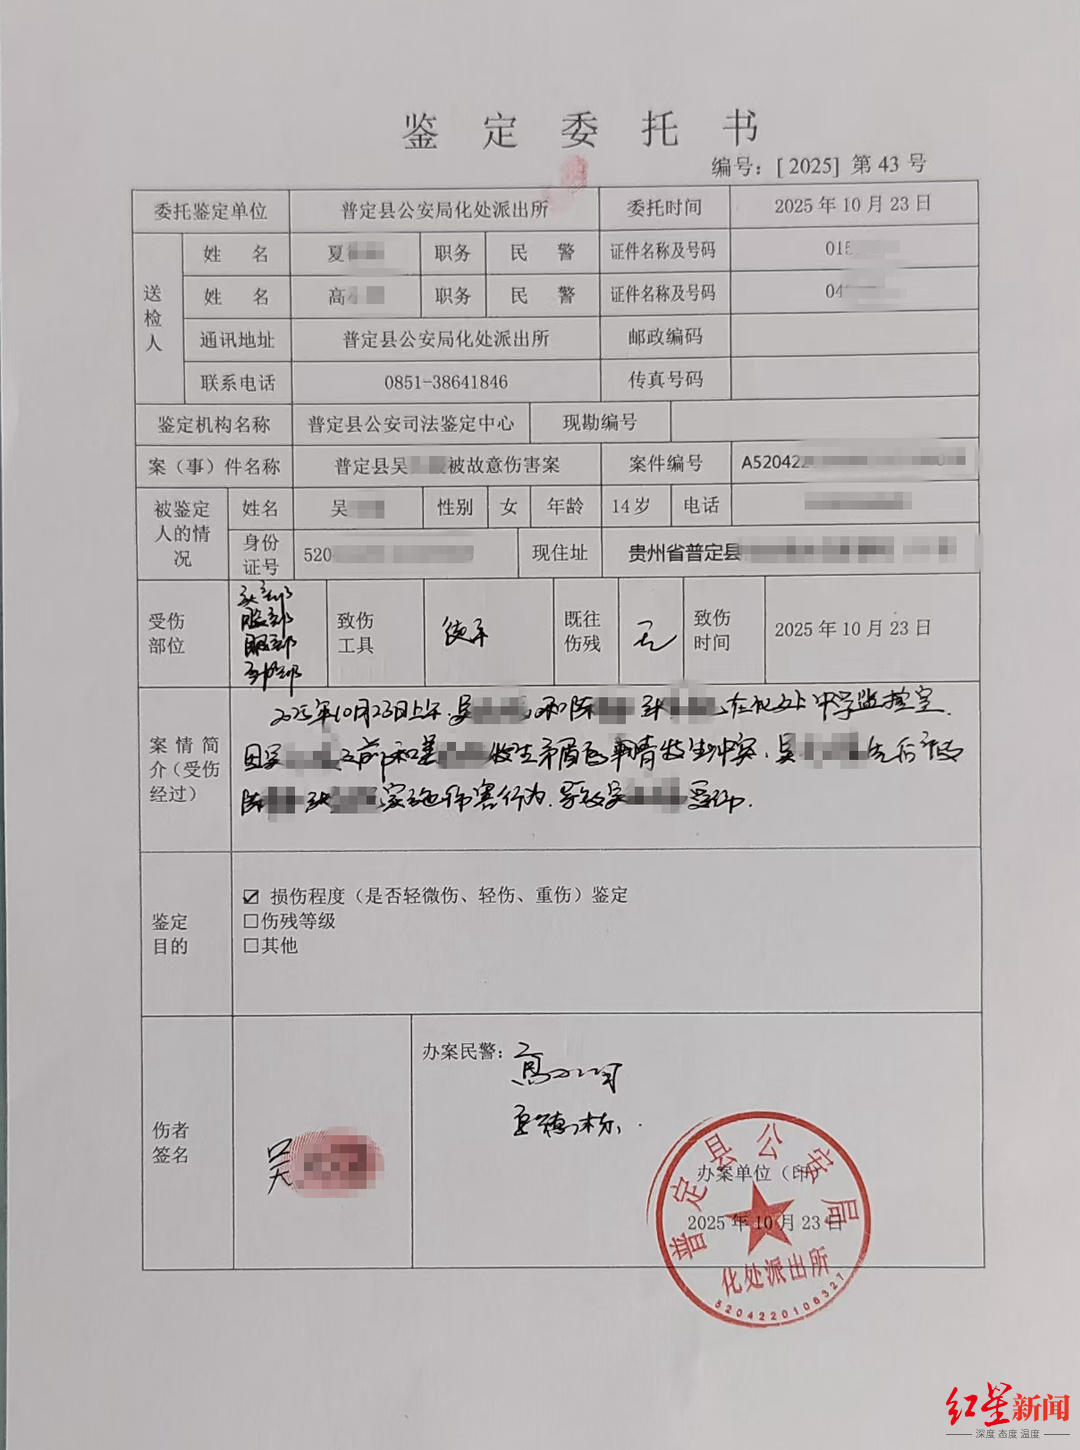 鉴定委托书
编号：[2025] 第 43 号
委托鉴定单位 普定县公安局化处派出所 委托时间 2025 年 10 月 23 日
送检人
姓 名 夏 职务 民 警 证件名称及号码 018
姓 名 高 职务 民 警 证件名称及号码 04
通讯地址 普定县公安局化处派出所 邮政编码
联系电话 0851-38641846 传真号码
鉴定机构名称 普定县公安司法鉴定中心 现勘编号
案（事）件名称 普定县吴 被故意伤害案 案件编号 A520422
被鉴定人的情况
姓名 吴 性别 女 年龄 14 岁 电话
身份证号 520 现住址 贵州省普定县
受伤部位 头部 腿部 致伤工具 徒手 既往伤残 无 致伤时间 2025 年 10 月 23 日
案情简介（受伤经过）
2025年10月23日上午,吴 和陈 张 在化处中学监控室,
因吴 之前和姜 发生矛盾的事情发生冲突,吴 先后被
陈 张 实施伤害行为,导致吴 受伤.
鉴定目的
☑ 损伤程度（是否轻微伤、轻伤、重伤）鉴定
□伤残等级
□其他
伤者签名 吴
办案民警：高
办案单位（印）
2025 年 10 月 23 日
普定县公安局
化处派出所
5204220106327
红星新闻
深度 态度 温度